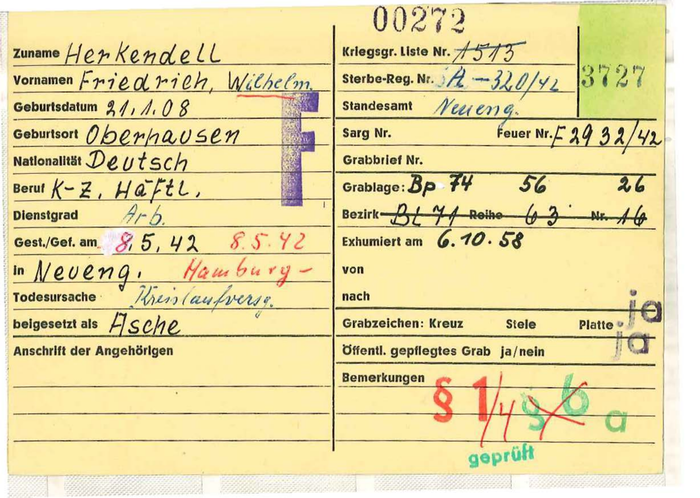 00272
Zuname Herkendell
Vornamen Friedrich, Wilhelm.
Geburtsdatum 21.1.08
Geburtsort Oberhausen
Nationalität Deutsch
Beruf K-Z. Häftl.
Dienstgrad Arb.
Gest./Gef. am 8.5.42 8.5.42
in Neueng. Hamburg-
Todesursache Kreislaufversg.
beigesetzt als Asche
Anschrift der Angehörigen
F
Kriegsgr. Liste Nr. 1513
Sterbe-Reg. Nr. A-320/42
3727
Standesamt Neueng.
Sarg Nr. Feuer Nr. F2932/42
Grabbrief Nr.
Grablage: Bp 74 56 26
Bezirk Bl 71 Reihe 63 Nr. 16
Exhumiert am 6.10.58
von
nach
Grabzeichen: Kreuz Stele Platte ja
Öffentl. gepflegtes Grab ja/nein ja
Bemerkungen
§ 1/4 § 6 a
geprüft